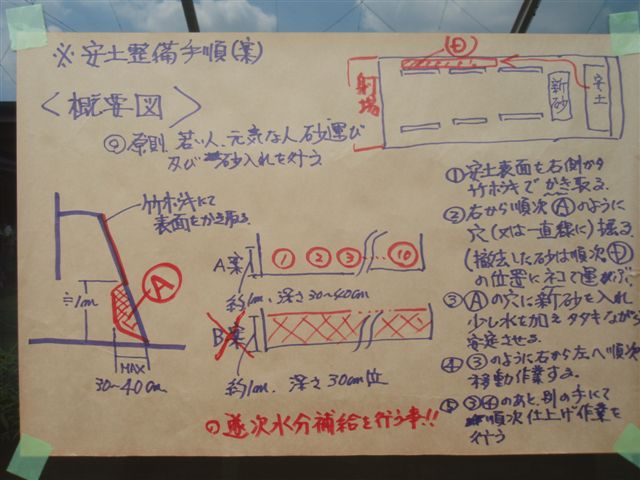 ※ 安土整備手順(案)
<概要図>
◎ 原則、若い人、元気な人 砂運び
及び 砂入れを行う
射場
新砂
安土
竹ホウキにて
表面をかき取る
A
≒1m
MAX
30~40cm
A案
① ② ③ … ⑩
約1m、深さ30~40cm
B案
約1m、深さ30cm位
◎逐次水分補給を行う事!!
① 安土表面を右側から
竹ホウキでかき取る。
② 右から順次Ⓐのように
穴(又は一直線に)掘る。
(撤去した砂は順次
の位置にネコで運ぶ)
③ Ⓐの穴に新砂を入れ
少し水を加えタタキながら
安定させる。
④ ③のように右から左へ順次
移動作業する。
⑤ ③④のあと、別の手にて
順次仕上げ作業を
行う